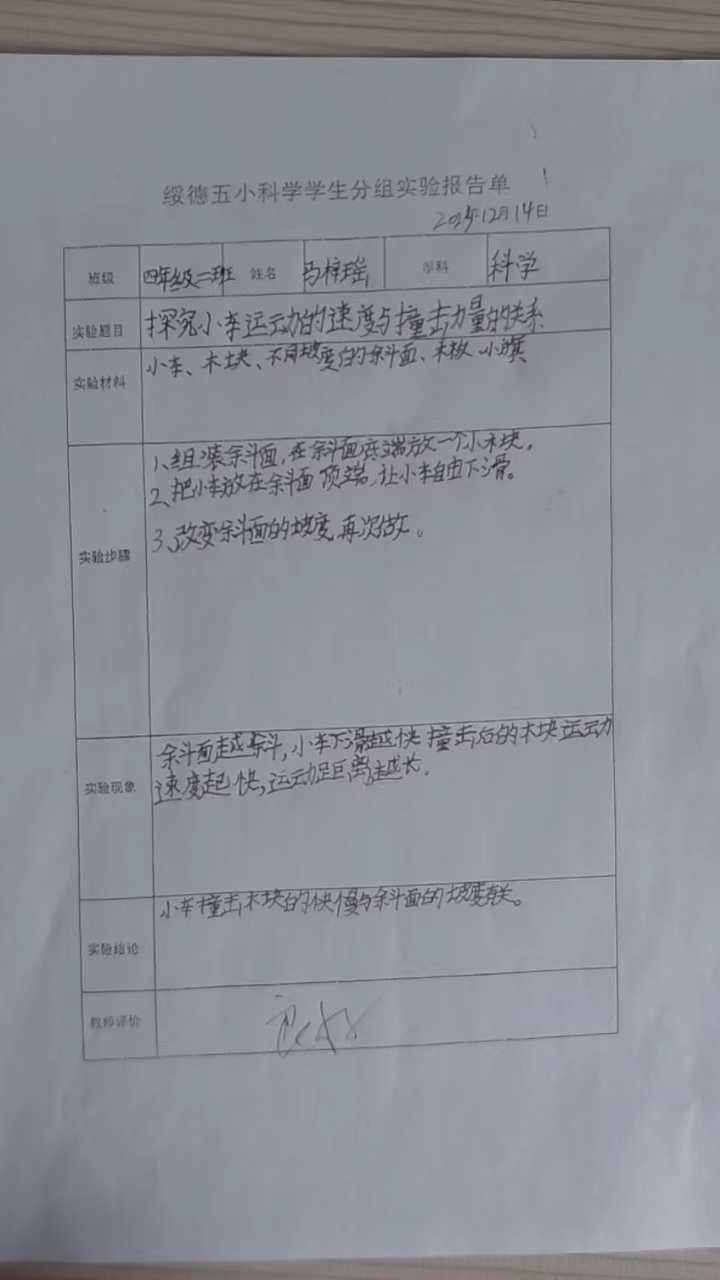 绥德五小科学学生分组实验报告单
12月14日
班级 四年级二班 姓名 马梓瑶 学科 科学
实验题目 探究小车运动的速度与撞击力量的关系
实验材料 小车、木块、不同坡度的斜面、木板、小旗
1、组装斜面,在斜面底端放一个小木块。
2、把小车放在斜面顶端,让小车自由下滑。
3、改变斜面的坡度,再次做。
实验步骤
斜面越斜,小车下滑越快,撞击后的木块运动
速度起快,运动距离越长。
实验现象
小车撞击木块的快慢与斜面的坡度有关。
实验结论
教师评价 良好